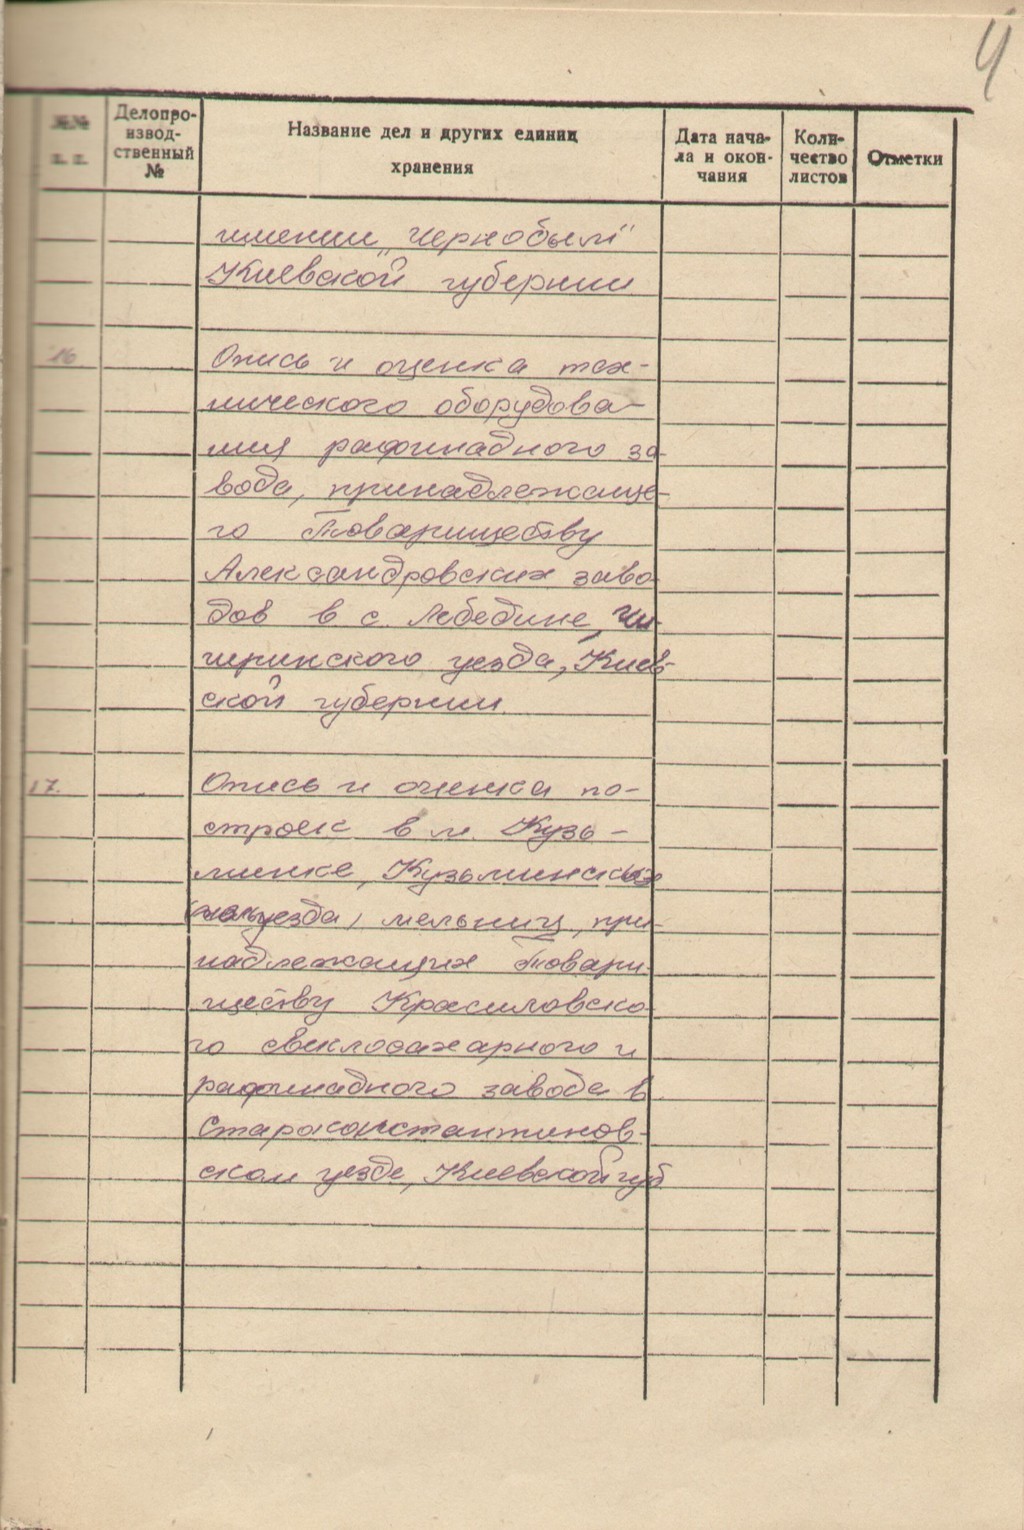 4
№№ п. п.
Делопро-
извод-
ственный
№
Название дел и других единиц
хранения
Дата нача-
ла и окон-
чания
Коли-
чество
листов
Отметки
имении „Чернобыль"
Киевской губернии
16 Опись и оценка тех-
нического оборудова-
ния рафинадного за-
вода, принадлежаще-
го Товариществу
Александровских заво-
дов в с. Лебедине, Чи-
гиринского уезда, Киев-
ской губернии.
17. Опись и оценка по-
строек в м. Кузь-
минке, Кузьминских
уезда, мельниц, при-
надлежащих Товари-
ществу Красиловско-
го свеклосахарного и
рафинадного завода в
Староконстантинов-
ском уезде, Киевской губ.